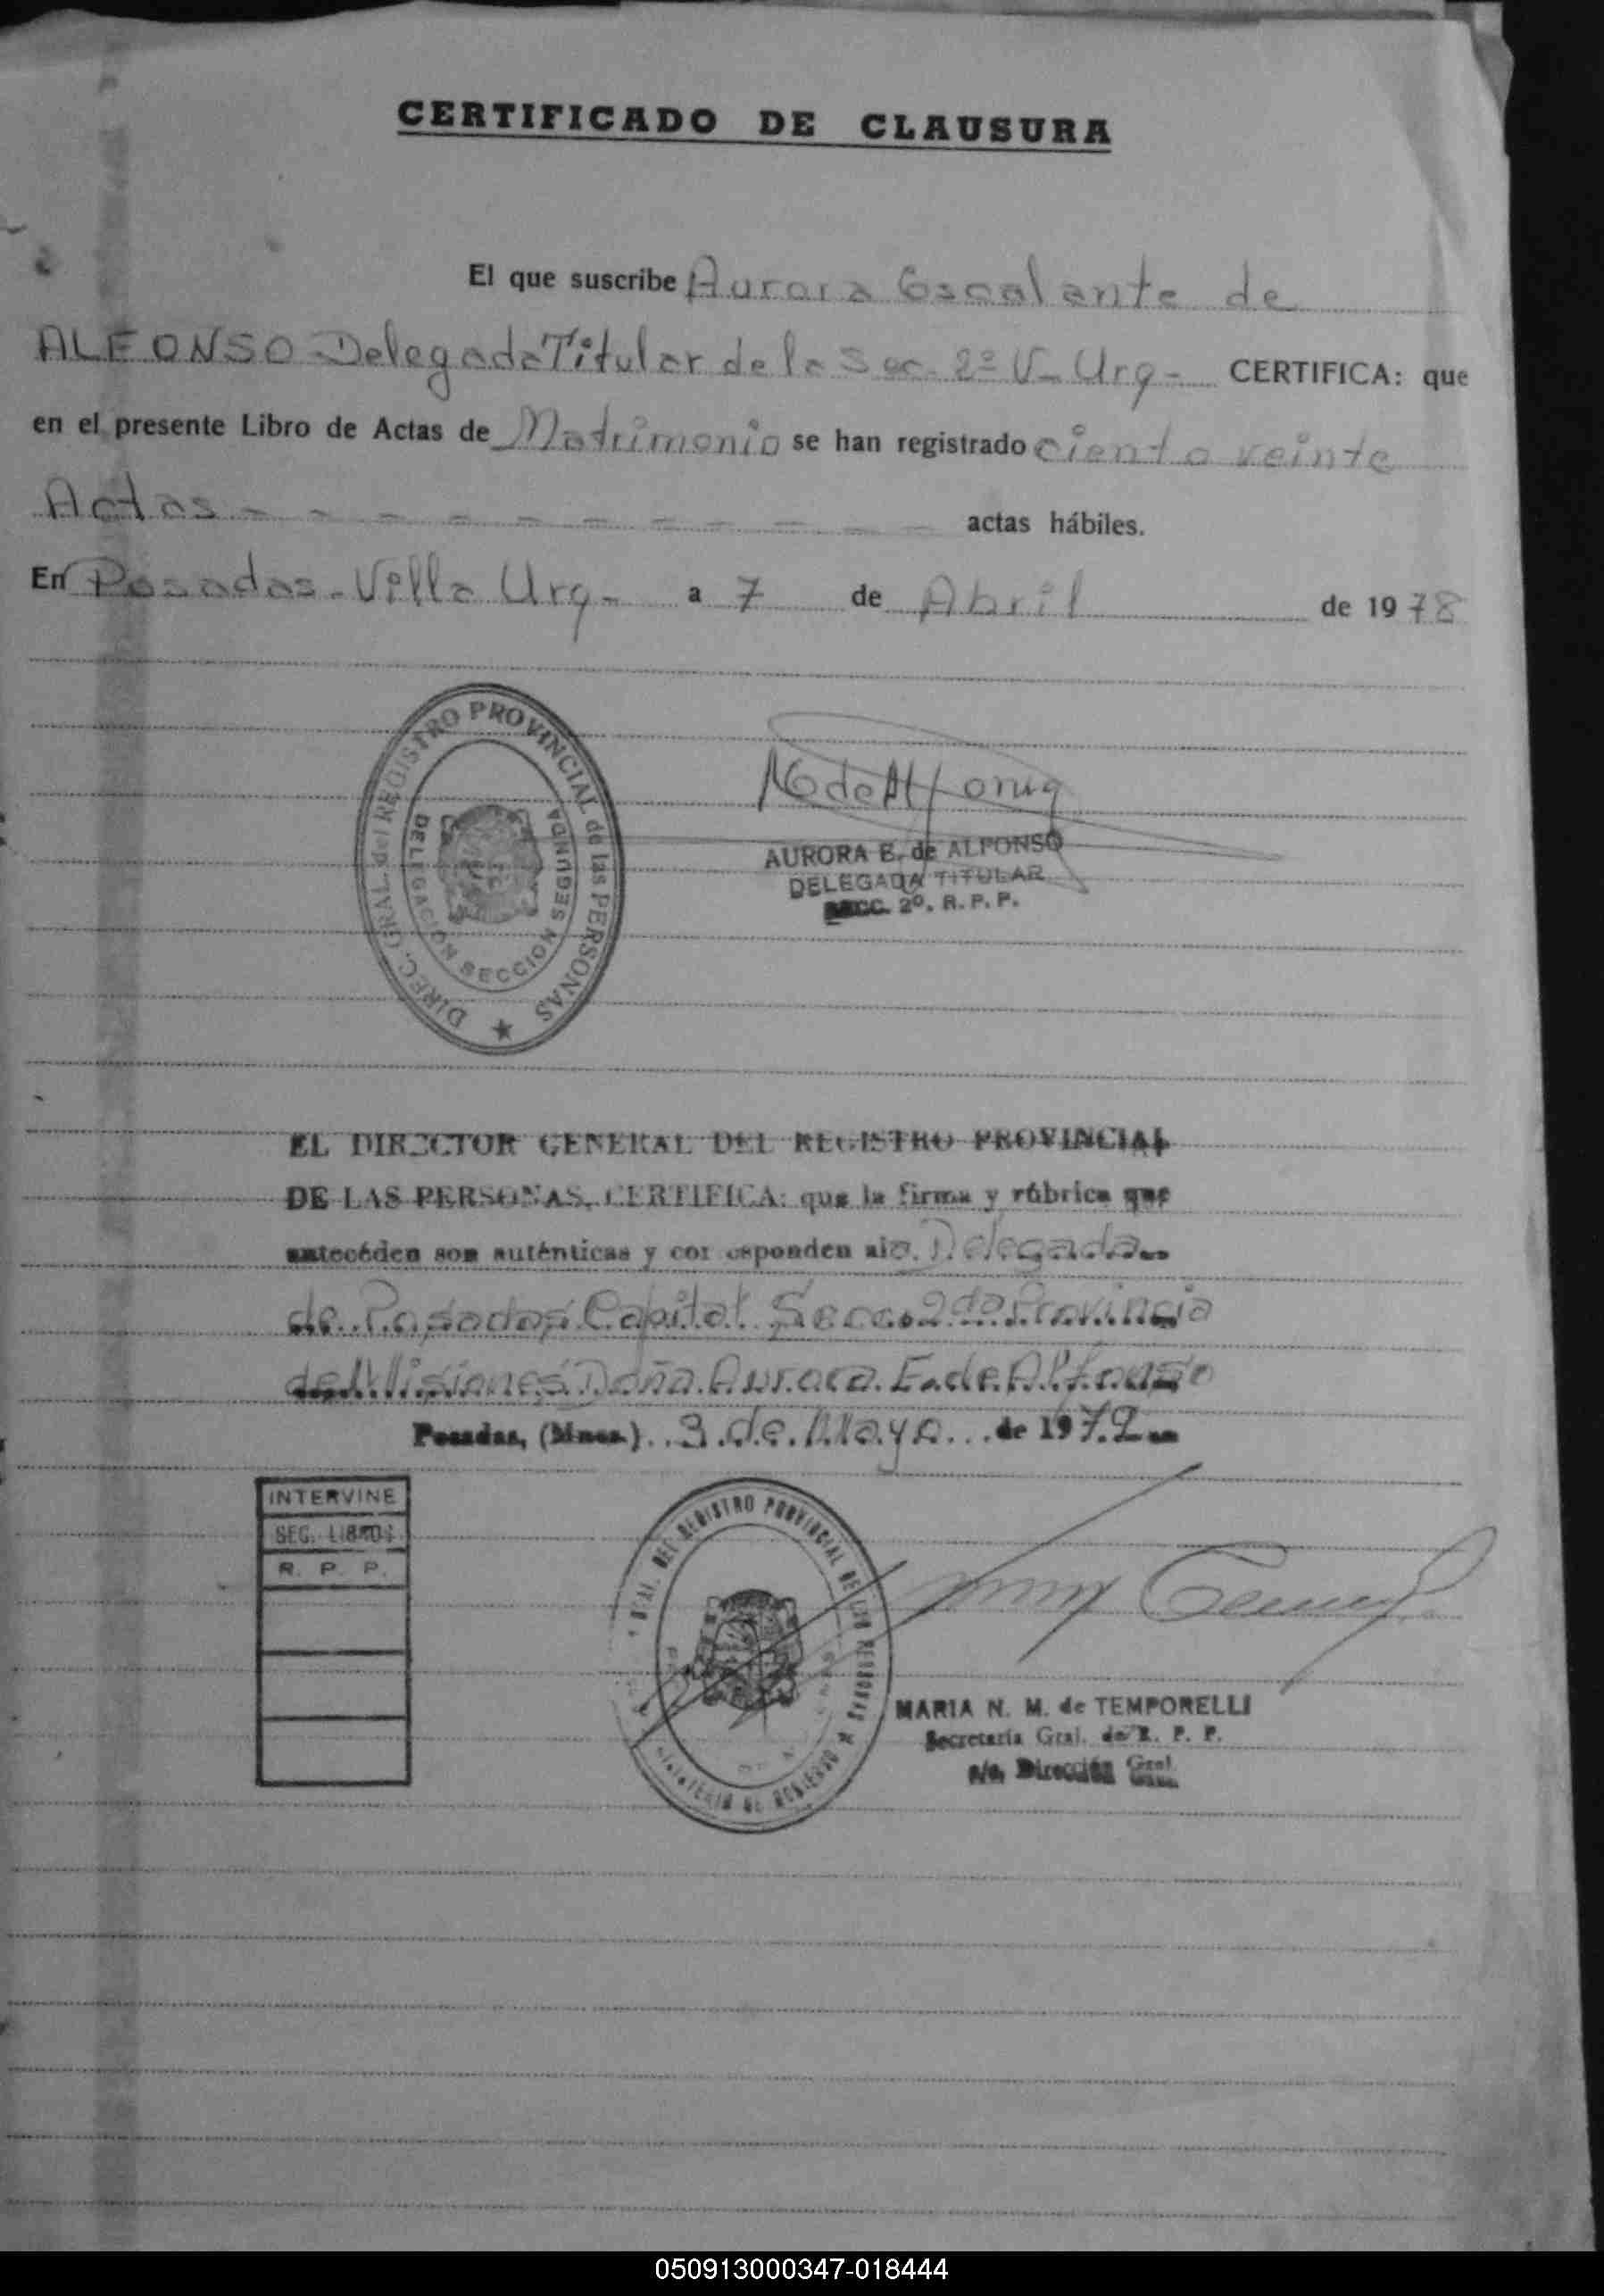 CERTIFICADO DE CLAUSURA
El que suscribe Aurora Escalante de
ALFONSO Delegada Titular de la Sec. 2º V- Urq- CERTIFICA: que
en el presente Libro de Actas de Matrimonio se han registrado ciento veinte
Actas - - - - - - - - - - actas hábiles.
En Posadas - Villa Urq- a 7 de Abril de 1978
DIREC. GRAL. del REGISTRO PROVINCIAL de las PERSONAS
DELEGACION SECCION SEGUNDA
AURORA E. de ALFONSO
DELEGADA TITULAR
SECC. 2º. R. P. P.
EL DIRECTOR GENERAL DEL REGISTRO PROVINCIAL
DE LAS PERSONAS, CERTIFICA: que la firma y rúbrica que
antecéden son auténticas y corresponden a la Delegada
de Posadas Capital Secc. 2da Provincia
de Misiones Doña Aurora E. de Alfonso
Posadas, (Mnes.) 3 de Mayo de 1979
INTERVINE
SEG. LIBROS
R. P. P.
GRAL. DEL REGISTRO PROVINCIAL DE LAS PERSONAS
MINISTERIO DE GOBIERNO
MARIA N. M. de TEMPORELLI
Secretaria Gral. de R. P. P.
a/c. Dirección Gral.
050913000347-018444